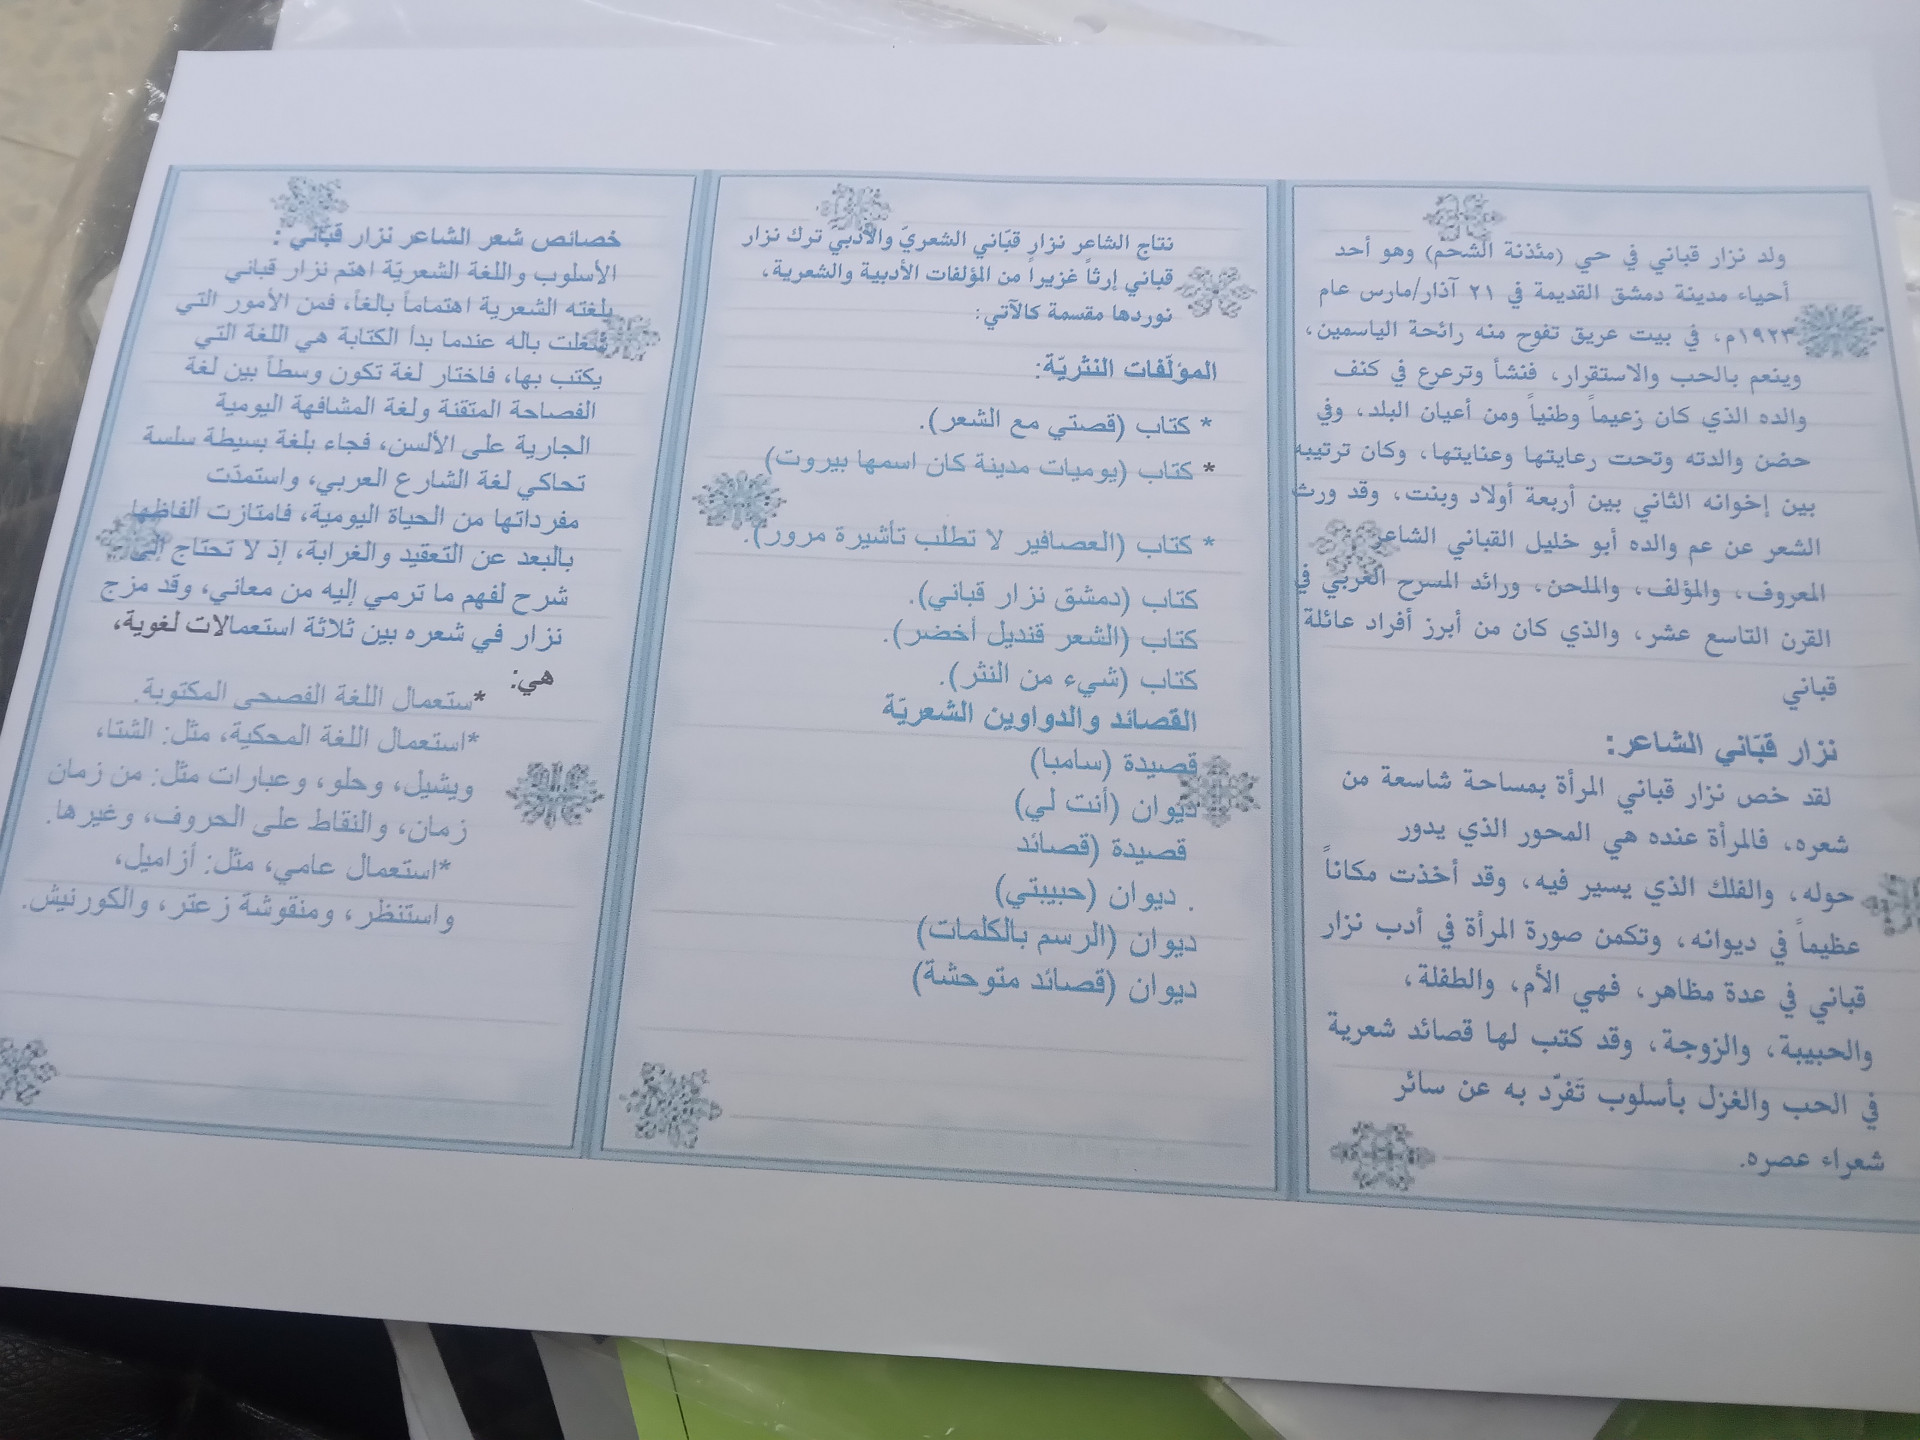 ولد نزار قباني في حي (مئذنة الشحم) وهو أحد
أحياء مدينة دمشق القديمة في ٢١ آذار/مارس عام
١٩٢٣م، في بيت عريق تفوح منه رائحة الياسمين،
وينعم بالحب والاستقرار، فنشأ وترعرع في كنف
والده الذي كان زعيماً وطنياً ومن أعيان البلد، وفي
حضن والدته وتحت رعايتها وعنايتها، وكان ترتيبه
بين إخوانه الثاني بين أربعة أولاد وبنت، وقد ورث
الشعر عن عم والده أبو خليل القباني الشاعر
المعروف، والمؤلف، والملحن، ورائد المسرح العربي في
القرن التاسع عشر، والذي كان من أبرز أفراد عائلة
قباني
نزار قبّاني الشاعر:
لقد خص نزار قباني المرأة بمساحة شاسعة من
شعره، فالمرأة عنده هي المحور الذي يدور
حوله، والفلك الذي يسير فيه، وقد أخذت مكاناً
عظيماً في ديوانه، وتكمن صورة المرأة في أدب نزار
قباني في عدة مظاهر، فهي الأم، والطفلة،
والحبيبة، والزوجة، وقد كتب لها قصائد شعرية
في الحب والغزل بأسلوب تَفرّد به عن سائر
شعراء عصره.
نتاج الشاعر نزار قبّاني الشعريّ والأدبيّ ترك نزار
قباني إرثاً غزيراً من المؤلفات الأدبية والشعرية،
نوردها مقسمة كالآتي:
المؤلّفات النثريّة:
* كتاب (قصتي مع الشعر).
* كتاب (يوميات مدينة كان اسمها بيروت)
* كتاب (العصافير لا تطلب تأشيرة مرور).
كتاب (دمشق نزار قباني).
كتاب (الشعر قنديل أخضر).
كتاب (شيء من النثر).
القصائد والدواوين الشعريّة
قصيدة (سامبا)
ديوان (أنت لي)
قصيدة (قصائد
. ديوان (حبيبتي)
ديوان (الرسم بالكلمات)
ديوان (قصائد متوحشة)
خصائص شعر الشاعر نزار قبّاني :
الأسلوب واللغة الشعريّة اهتم نزار قباني
بلغته الشعرية اهتماماً بالغاً، فمن الأمور التي
شغلت باله عندما بدأ الكتابة هي اللغة التي
يكتب بها، فاختار لغة تكون وسطاً بين لغة
الفصاحة المتقنة ولغة المشافهة اليومية
الجارية على الألسن، فجاء بلغة بسيطة سلسة
تحاكي لغة الشارع العربي، واستمدّت
مفرداتها من الحياة اليومية، فامتازت ألفاظها
بالبعد عن التعقيد والغرابة، إذ لا تحتاج إلى
شرح لفهم ما ترمي إليه من معاني، وقد مزج
نزار في شعره بين ثلاثة استعمالات لغوية،
هي:
*ستعمال اللغة الفصحى المكتوبة.
*استعمال اللغة المحكية، مثل: الشتا،
ويشيل، وحلو، وعبارات مثل: من زمان
زمان، والنقاط على الحروف، وغيرها.
*استعمال عامي، مثل: أزاميل،
واستنظر، ومنقوشة زعتر، والكورنيش.